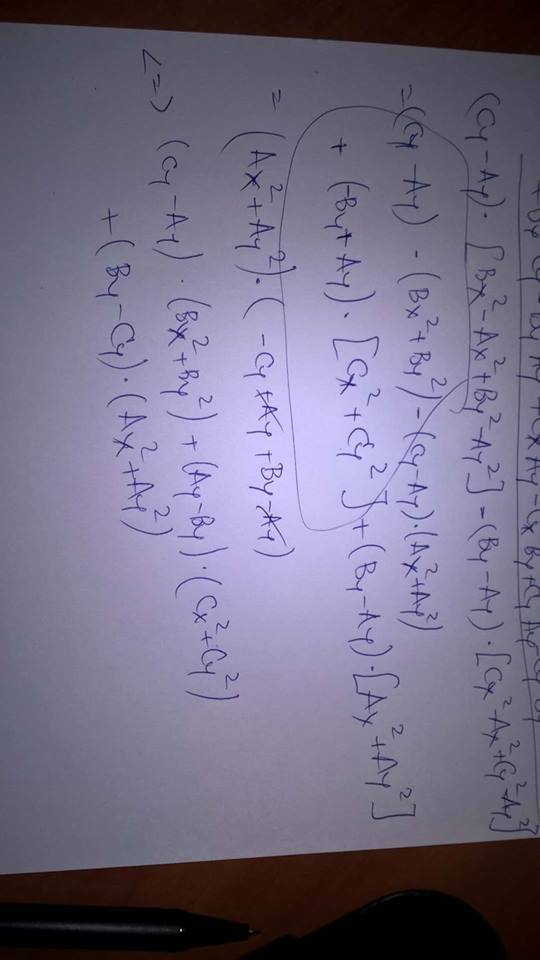 +By Cy - By Ay + Cx Ay - Cx By + Cy Ay - Cy By
(Cy - Ay) · [Bx² - Ax² + By² - Ay²] - (By - Ay) · [Cx² - Ax² + Cy² - Ay²]
= (Cy - Ay) - (Bx² + By²) - (Cy - Ay) · (Ax² + Ay²)
+ (-By + Ay) · [Cx² + Cy²] + (By - Ay) · [Ax² + Ay²]
= (Ax² + Ay²) · (-Cy + Ay + By - Ay)
<=> (Cy - Ay) · (Bx² + By²) + (Ay - By) · (Cx² + Cy²)
+ (By - Cy) · (Ax² + Ay²)